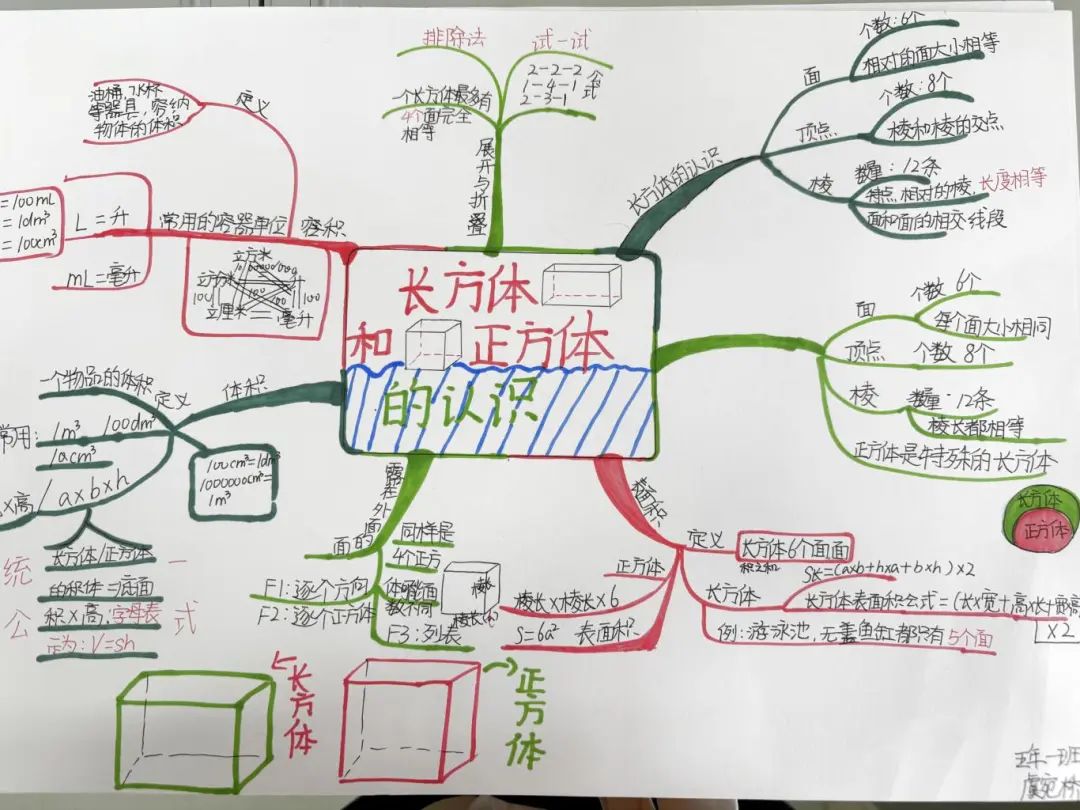 长方体
和 正方体
的认识
展开与折叠
排除法
一个长方体最多有
4个面完全
相等
试一试
2-2-2
1-4-1
2-3-1
公式
长方体的认识
面
个数:6个
相对的面大小相等
顶点
个数:8个
棱和棱的交点
棱
数量:12条
特点:相对的棱,长度相等
面和面的相交线段
面
个数 6个
每个面大小相同
顶点 个数 8个
棱
数量:12条
棱长都相等
正方体是特殊的长方体
长方体
正方体
表面积
定义
长方体6个面面
积之和
长方体
S长=(axb+hxa+bxh)×2
长方体表面积公式=(长×宽+高×长+宽×高
×2
例:游泳池,无盖鱼缸都只有5个面
正方体
棱长×棱长×6
S=6a² 表面积
露在外面的
面
同样是
4个正方
体
数不同
棱长(a)
F1:逐个方向
F2:逐个正方体
F3:列表
体积
定义
一个物品的体积
常用:1m³ 100dm³
1acm³
100cm³=1dm³
1000000cm³=
1m³
×高/axbxh
长方体/正方体
的积体=底面
积×高,字母表
定为:V=sh
统一公式
容积
定义
油桶,水杯
等器具,容纳
物体的体积
常用的容器单位
L=升
mL=毫升
=100mL
=1dm³
=100cm³
立方米
立方分米
升
100
100
100
立厘米
毫升
←长方体
→正方体
五年一班
虞宛桥